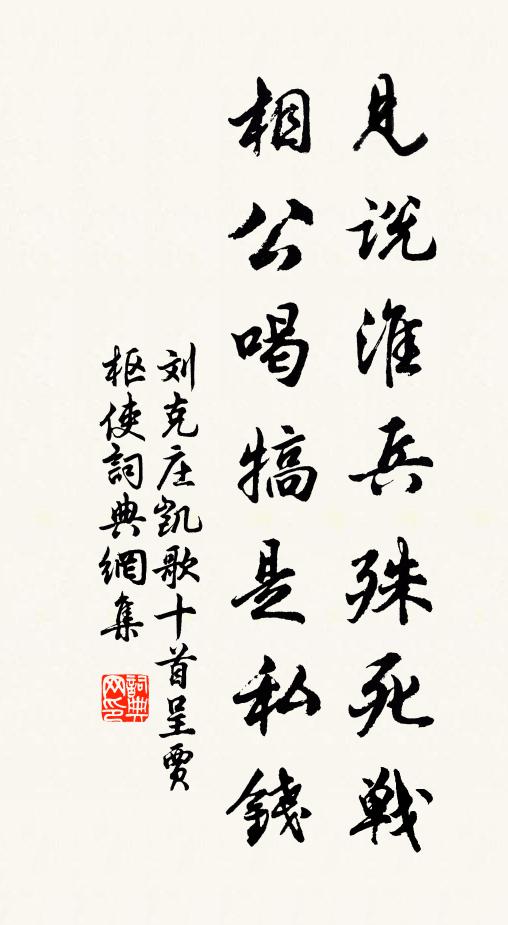 见说淮兵殊死战
相公喝犒是私钱
刘克庄凯歌十首呈贾
枢使詞典網集
詞典网印